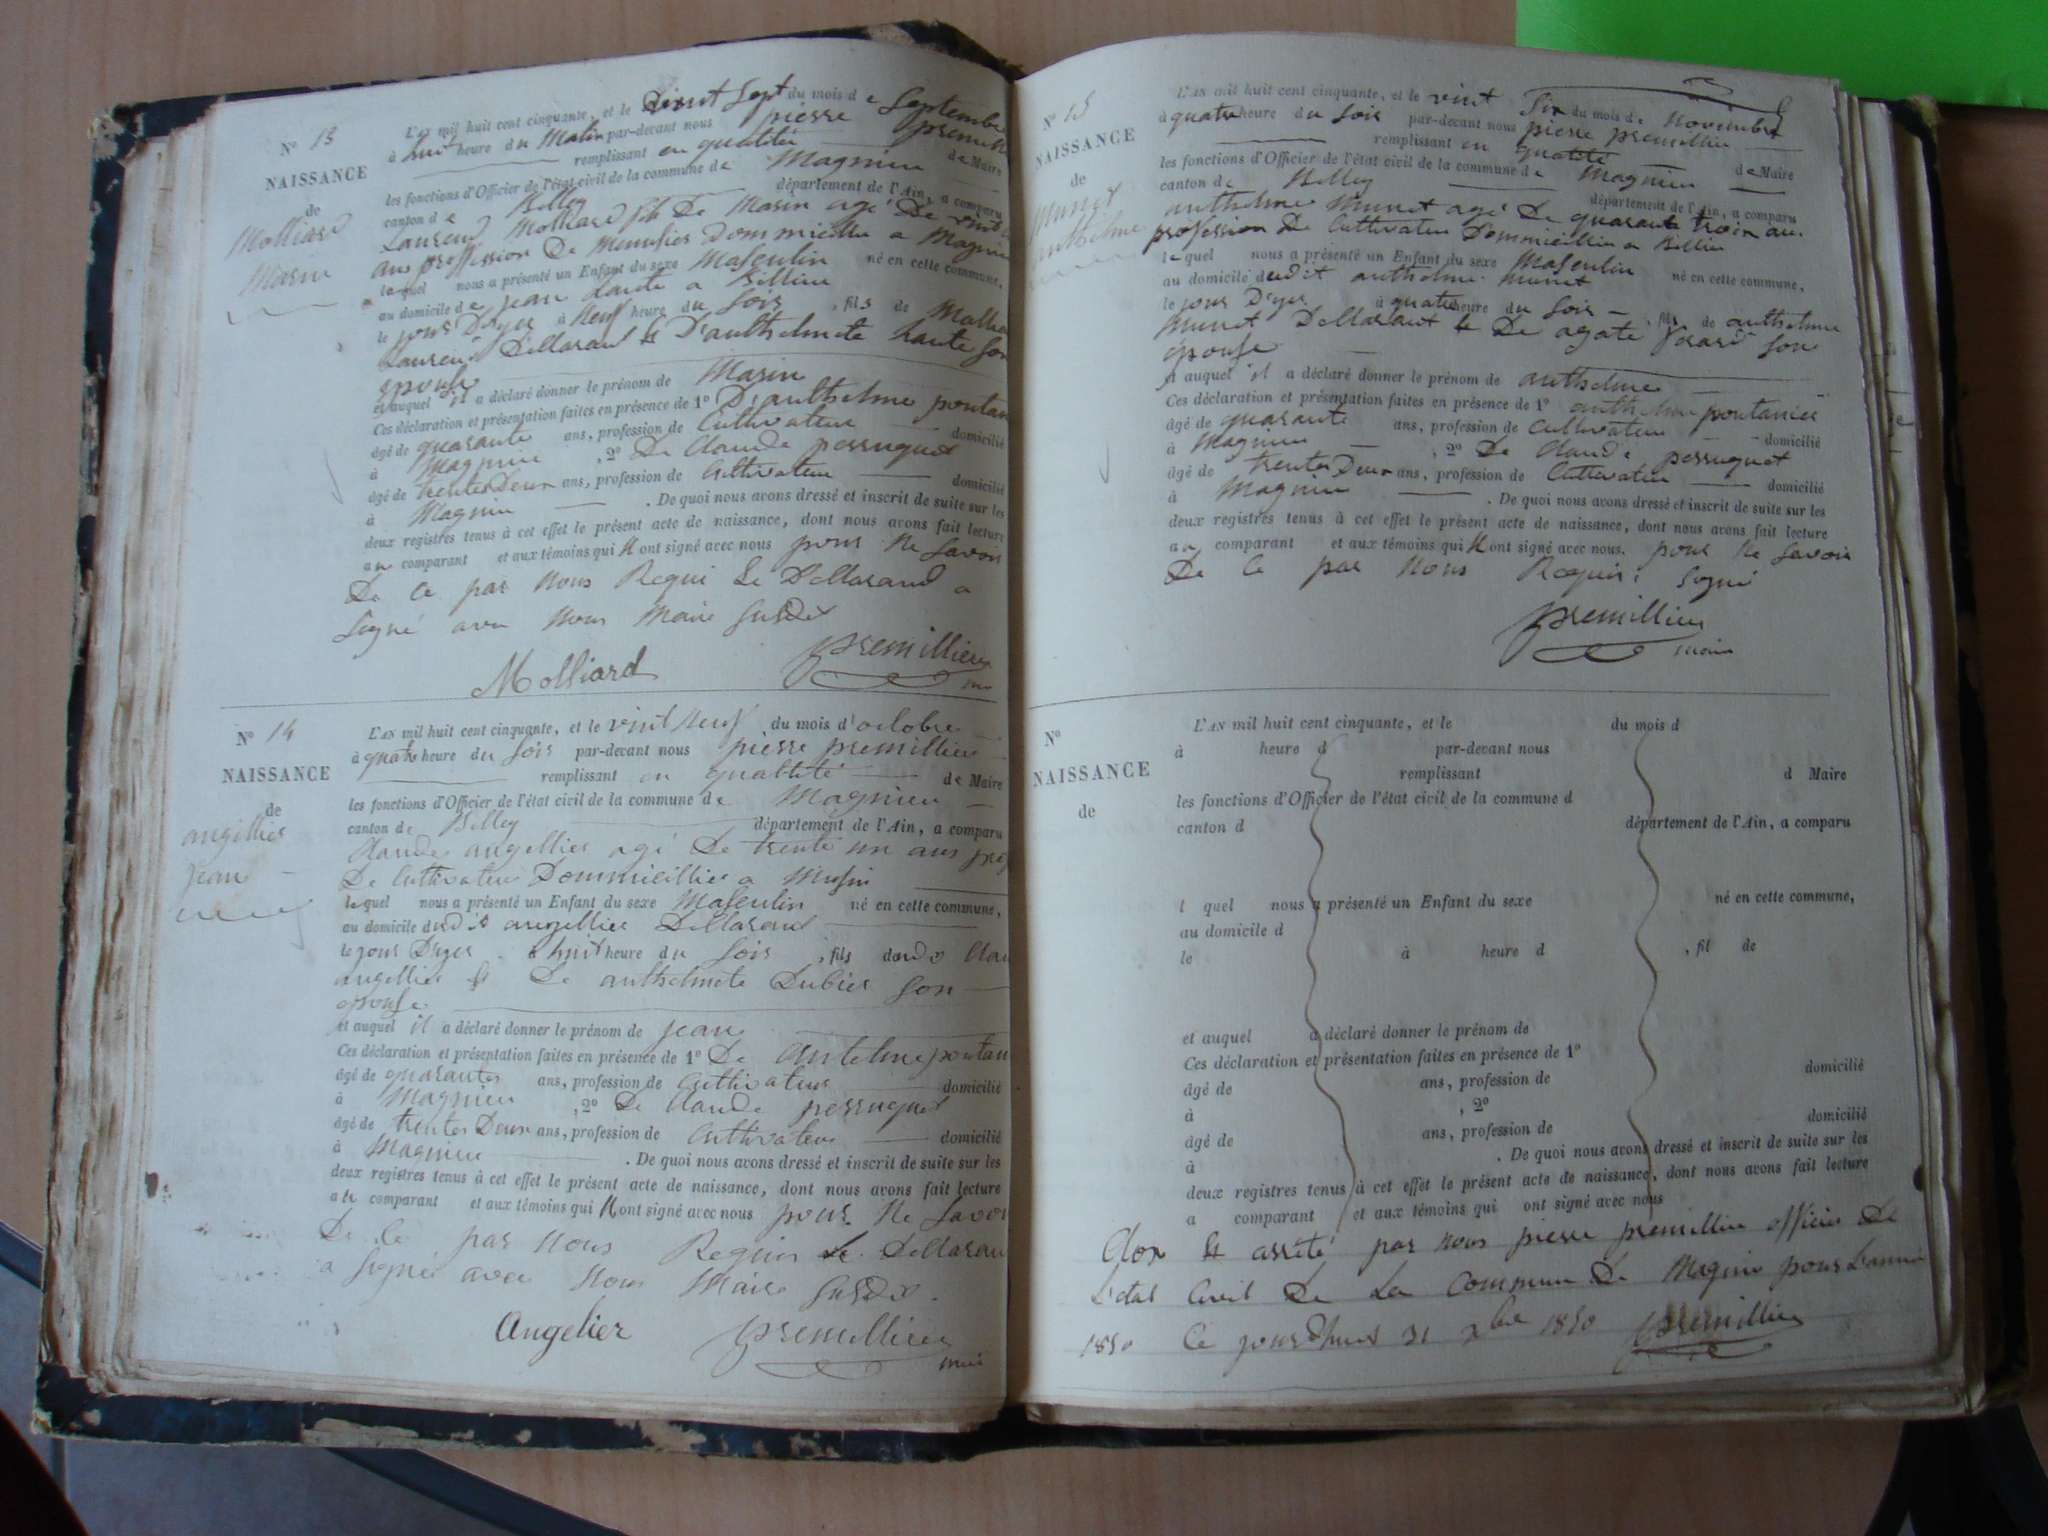 N° 13
NAISSANCE
de
Molliard
Marin
L'AN mil huit cent cinquante, et le vint Sept du mois de Septembre
à huit heure du Matin par-devant nous pierre premilli
remplissant en qualitée de Maire
les fonctions d'Officier de l'état civil de la commune de Magnieu
canton de Belley département de l'Ain, a comparu
Laurend Molliard fils De Marin agé De vint
ans proffission De Menusier Dommicillie a Magnieu
lequel nous a présenté un Enfant du sexe Masculin né en cette commune,
au domicile de jean Lante a Billieu
le jour D'yer à Neuf heure du Soir, fils de Mollia
Laurend Dellarand et D'anthelmete Lante Son
epouse
et auquel il a déclaré donner le prénom de Marin
Ces déclaration et présentation faites en présence de 1° D'anthelme pontan
âgé de quarante ans, profession de Cultivateur domicilié
à Magnieu, 2° De Claude perruquet
âgé de trentes Deux ans, profession de Cultivateur domicilié
à Magnieu. De quoi nous avons dressé et inscrit de suite sur les
deux registres tenus à cet effet le présent acte de naissance, dont nous avons fait lecture
au comparant et aux témoins qui N ont signé avec nous pour Ne Savoir
De ce par Nous Requi Le Dellarand a
Signé avec Nous Maire Susdit
Molliard premillieu
N° 14
NAISSANCE
de
angillier
jean
L'AN mil huit cent cinquante, et le vint Neuf du mois d'octobre
à quatre heure du Soir par-devant nous pierre premillieu
remplissant en qualitté de Maire
les fonctions d'Officier de l'état civil de la commune de Magnieu
canton de Belley département de l'Ain, a comparu
Claude angellier agé De trente un ans prof
De Cultivateur Dommicillier a Musin
lequel nous a présenté un Enfant du sexe Masculin né en cette commune,
au domicile dudit angellier Dellarand
le jour D'yer à huit heure du Soir, fils dudit Clau
angellier et De anthelmete Dubier Son
epouse
et auquel il a déclaré donner le prénom de jean
Ces déclaration et présentation faites en présence de 1° De Antelme pontan
âgé de quarantes ans, profession de Cultivateur domicilié
à Magnieu, 2° De Claude perruquet
âgé de trentes Deux ans, profession de Cultivateur domicilié
à Magnieu. De quoi nous avons dressé et inscrit de suite sur les
deux registres tenus à cet effet le présent acte de naissance, dont nous avons fait lecture
au comparant et aux témoins qui N ont signé avec nous pour Ne Savoi
De ce par Nous Requis Le Dellaran
a Signé avec Nous Maire Susdit.
Angelier premillieu
N° 15
NAISSANCE
de
Munet
anthelme
L'AN mil huit cent cinquante, et le vint Six du mois de Novembre
à quatre heure du Soir par-devant nous pierre premillieu
remplissant en qualité de Maire
les fonctions d'Officier de l'état civil de la commune de Magnieu
canton de Belley département de l'Ain, a comparu
anthelme Munet agé De quarante troix an.
profession De Cultivateur Dommicillie a Billieu
lequel nous a présenté un Enfant du sexe Masculin né en cette commune,
au domicile dudit anthelme Munet
le jour D'yer à quatre heure du Soir fils de anthelme
Munet Dellarant et De agate Son
epouse
et auquel il a déclaré donner le prénom de anthelme
Ces déclaration et présentation faites en présence de 1° anthelme pontanier
âgé de quarante ans, profession de Cultivateur domicilié
à Magnieu, 2° De Claude perruquet
âgé de trentes Deux ans, profession de Cultivateur domicilié
à Magnieu. De quoi nous avons dressé et inscrit de suite sur les
deux registres tenus à cet effet le présent acte de naissance, dont nous avons fait lecture
au comparant et aux témoins qui N ont signé avec nous. pour Ne Savoir
De ce par Nous Requis Signé
premillieu
maire
N°
NAISSANCE
de
L'AN mil huit cent cinquante, et le du mois d
à heure d par-devant nous
remplissant d Maire
les fonctions d'Officier de l'état civil de la commune d
canton d département de l'Ain, a comparu
l quel nous a présenté un Enfant du sexe né en cette commune,
au domicile d
le à heure d, fil de
et auquel a déclaré donner le prénom de
Ces déclaration et présentation faites en présence de 1°
âgé de ans, profession de domicilié
à, 2°
âgé de ans, profession de domicilié
à. De quoi nous avons dressé et inscrit de suite sur les
deux registres tenus à cet effet le présent acte de naissance, dont nous avons fait lecture
a comparant et aux témoins qui ont signé avec nous
Clox et arrêté par Nous pierre premillieu officier De
L'etat Civil De La Commune De Magnieu pour L'année
1850 Ce jourd'hui 31 xbre 1850 premillieu